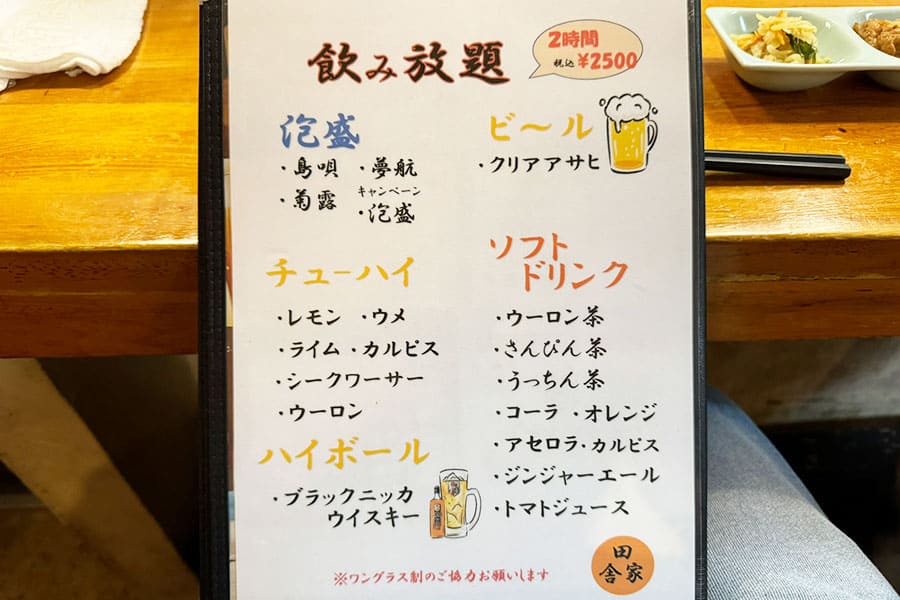 飲み放題
2時間
税込 ¥2500
泡盛
・島唄 ・夢航
・菊露 キャンペーン
・泡盛
ビ〜ル
・クリアアサヒ
チューハイ
・レモン ・ウメ
・ライム ・カルピス
・シークワーサー
・ウーロン
ハイボール
・ブラックニッカ
ウイスキー
ソフト
ドリンク
・ウーロン茶
・さんぴん茶
・うっちん茶
・コーラ ・オレンジ
・アセロラ・カルピス
・ジンジャーエール
・トマトジュース
※ワングラス制のご協力お願いします
田舎家